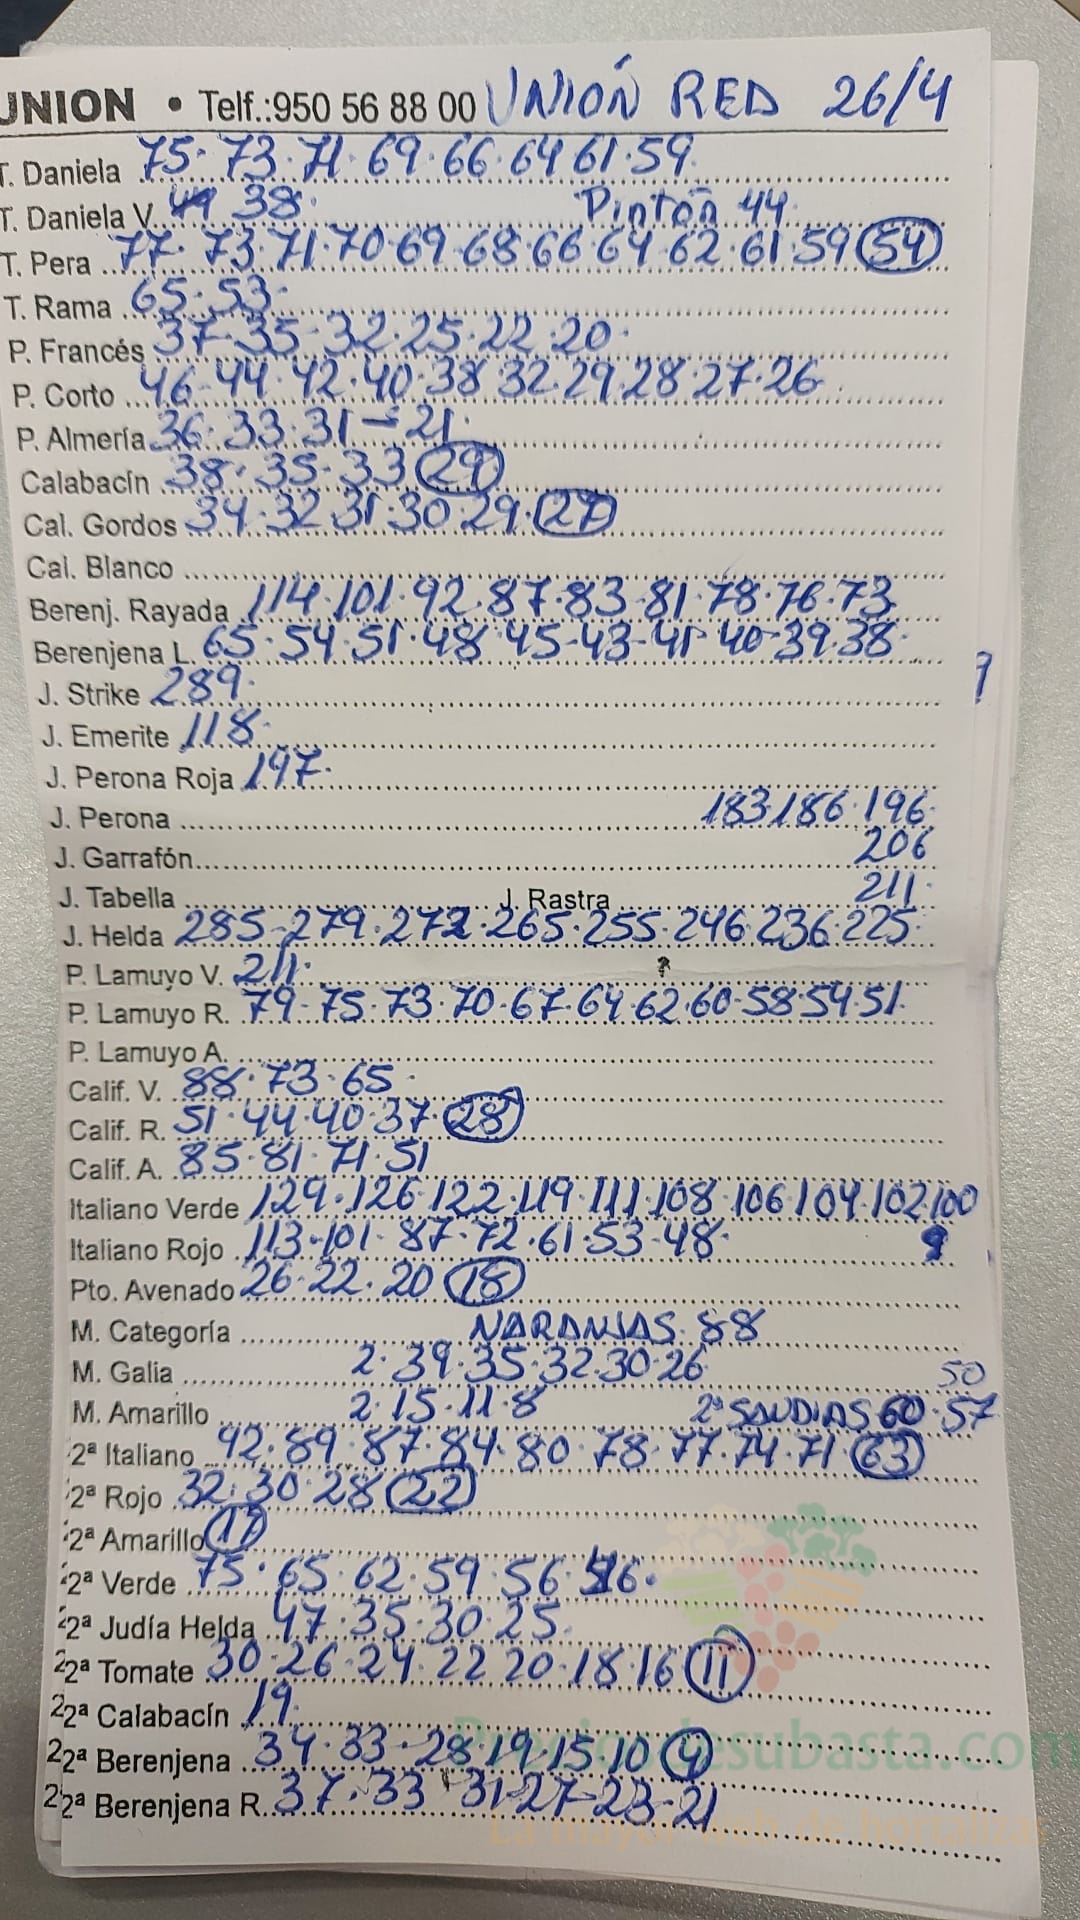 UNION • Telf.:950 56 88 00 UNIÓN RED 26/4
T. Daniela 75·73·71·69·66·64 61·59
T. Daniela V. 38· Pintón 44
T. Pera 77·73·71·70·69·68·66·64·62·61·59 54
T. Rama 65·53·
P. Francés 37-35-32·25·22·20·
P. Corto 46-44·42·40·38·32·29·28·27·26
P. Almería 36·33·31-21·
Calabacín 38·35-33 29
Cal. Gordos 34·32·31·30·29· 27
Cal. Blanco
Berenj. Rayada 114·101·92·87·83·81·78·76·73
Berenjena L. 65·54·51·48·45-43-41·40-39·38·
J. Strike 289·
J. Emerite 118·
J. Perona Roja 197·
J. Perona 183·186·196·
J. Garrafón 206
J. Tabella J. Rastra 211·
J. Helda 285-279·272·265·255·246·236·225·
P. Lamuyo V. 211·
P. Lamuyo R. 79·75·73·70·67·64·62·60·58·54·51·
P. Lamuyo A.
Calif. V. 88·73·65·
Calif. R. 51·44·40·37· 28
Calif. A. 85·81·71·51
Italiano Verde 129·126·122·119·111·108·106·104·102·100
Italiano Rojo 113·101·87·72·61·53·48·
Pto. Avenado 26·22·20 18
M. Categoría NARANJAS·88
M. Galia 2·39·35·32·30·26 50
M. Amarillo 2·15·11·8 2ª SANDIAS 60·57
2ª Italiano 92·89·87·84·80·78·77·74·71 63
2ª Rojo 32·30·28 22
2ª Amarillo 17
2ª Verde 75·65·62·59·56·
2ª Judía Helda 47·35·30·25·
2ª Tomate 30·26·24·22·20·18·16 11
2ª Calabacín 19·
2ª Berenjena 34·33·28·19·15·10 4
2ª Berenjena R. 37·33·31-27-23-21
Preciosdesubasta.com
La mayor web de hortalizas